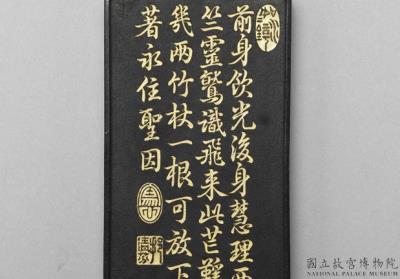 前身飲光後身慧理西
竺靈鷲識飛来此芒鞵
幾兩竹杖一根可放下
著永住聖因
國立故宮博物院
NATIONAL PALACE MUSEUM